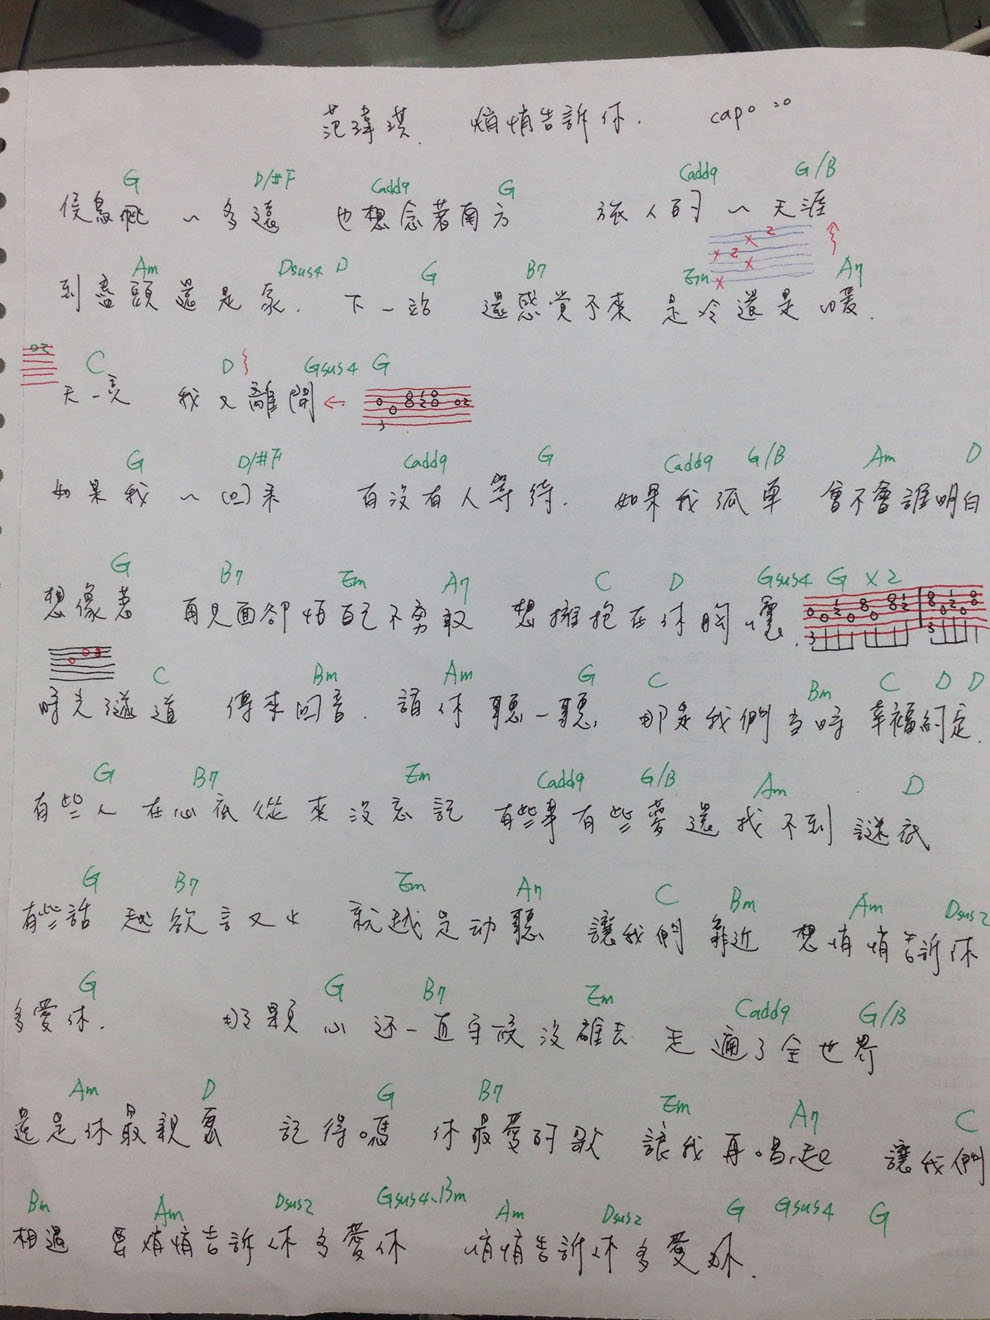 范瑋琪 悄悄告訴你 capo=0
G D/#F Cadd9 G Cadd9 G/B
候鳥飛 ~ 多遠 也想念著南方 旅人的 ~ 天涯
Am Dsus4 D G B7 Em A7
到盡頭 還是家. 下一站 還感覺不來 是冷還是暖.
C D Gsus4 G
天一亮 我又離開 ←
G D/#F Cadd9 G Cadd9 G/B Am D
如果我 ~ 回來 有沒有人等待. 如果我孤單 會不會誰明白
G B7 Em A7 C D Gsus4 G x2
想像著 再見面卻怕自己不勇敢 想擁抱在你胸
C Bm Am G C Bm C D D
時光隧道 傳來回音. 請你聽一聽 那是我們當時 幸福約定.
G B7 Em Cadd9 G/B Am D
有些人 在心底從來沒忘記 有些事有些夢還找不到謎底
G B7 Em A7 C Bm Am Dsus2
有些話 越欲言又止 就越是动聽 讓我們靠近 想悄悄告訴你
G G B7 Em Cadd9 G/B
多愛你. 那顆心 还一直守候沒離去 走遍了全世界
Am D G B7 Em A7 C
還是你最親密 記得嗎 你最愛的歌 讓我再唱起 讓我們
Bm Am Dsus2 Gsus4-Bm Am Dsus2 G Gsus4 G
相遇 要悄悄告訴你多愛你 悄悄告訴你多愛你.